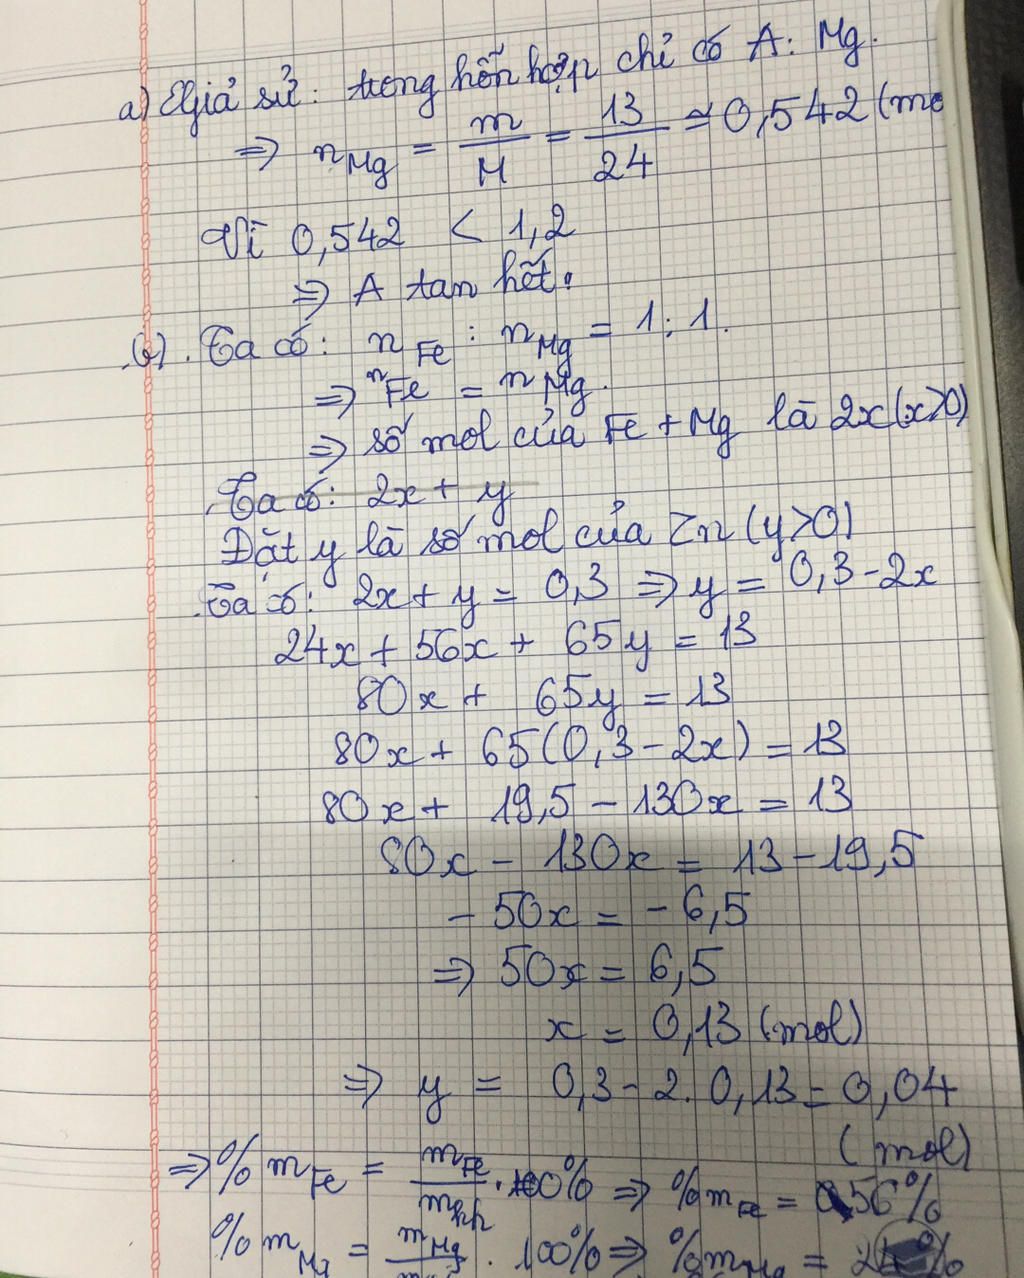 a) Giả sử: trong hỗn hợp chỉ có A: Mg.
=> nMg = m/M = 13/24 ≈ 0,542 (mo
Vì 0,542 < 1,2
=> A tan hết.
b). Ta có: nFe : nMg = 1:1.
=> nFe = nMg.
=> số mol của Fe + Mg là 2x (x>0)
Ta có: 2x + y
Đặt y là số mol của Zn (y>0)
Ta có: 2x + y = 0,3 => y = 0,3 - 2x
24x + 56x + 65y = 13
80x + 65y = 13
80x + 65(0,3 - 2x) = 13
80x + 19,5 - 130x = 13
80x - 130x = 13 - 19,5
- 50x = - 6,5
=> 50x = 6,5
x = 0,13 (mol)
=> y = 0,3 - 2. 0,13 = 0,04
(mol)
=> % mFe = mFe/mhh . 100% => % mFe = 56%
% mMg = mMg . 100% => % mMg = %